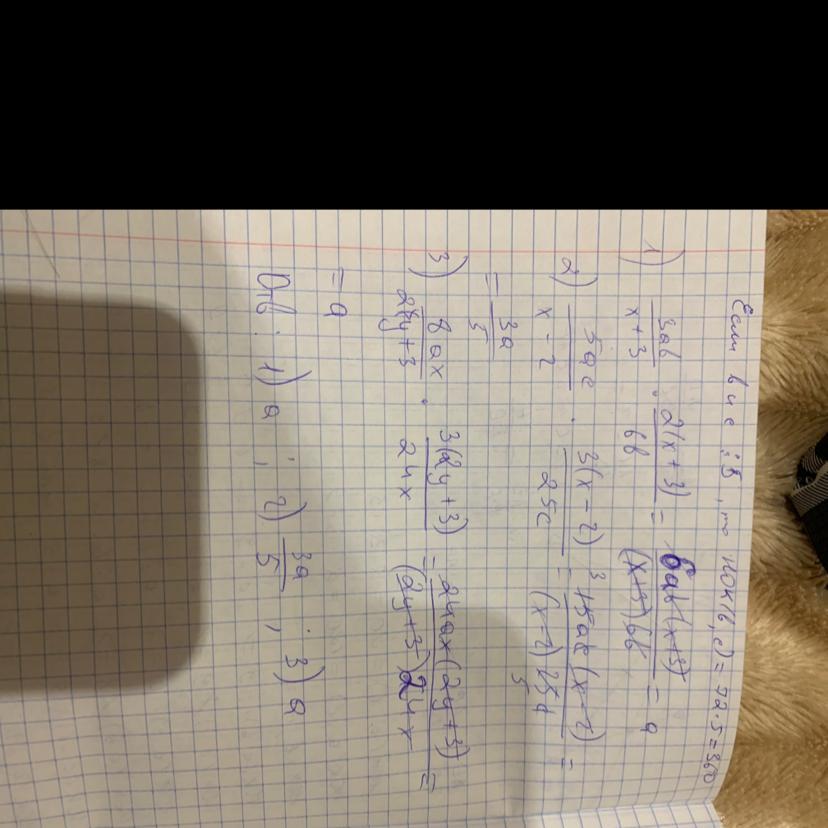 Если b и c : 5, то НОК(b,c) = 72·5 = 360
1) 3ab/x+3 · 2(x+3)/6b = 6ab(x+3)/(x+3)6b = a
2) 5ac/x-2 · 3(x-2)/25c = 3 15ac(x-2)/(x-2)25c 5 =
= 3a/5
3) 8ax/2y+3 · 3(2y+3)/24x = 24ax(2y+3)/(2y+3)24x =
= a
Отв: 1) a; 2) 3a/5; 3) a